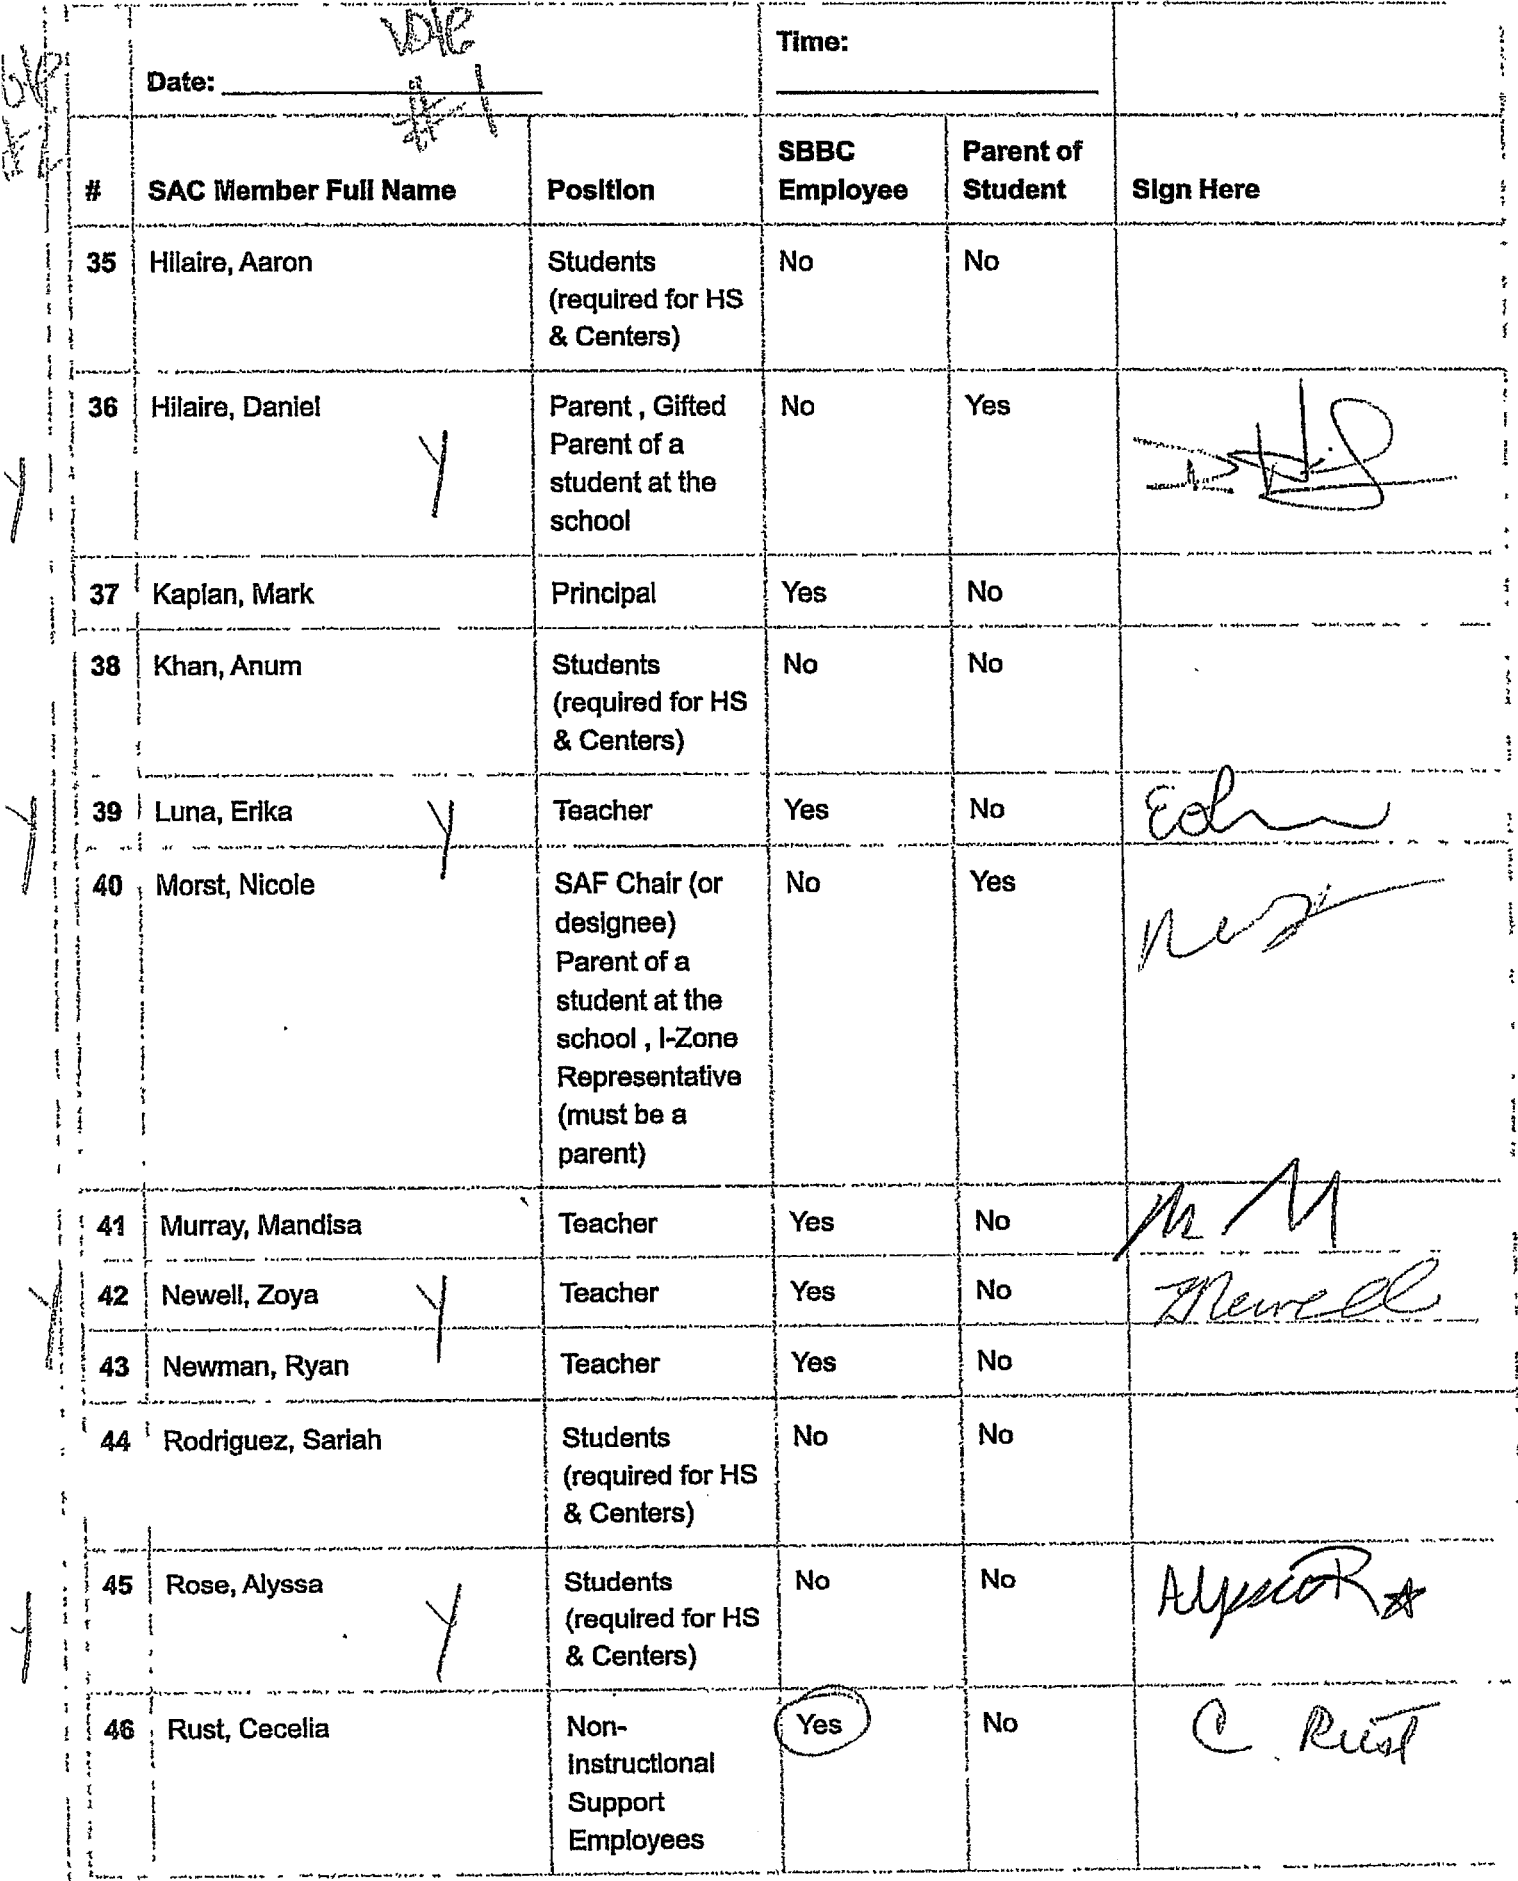 Vote
#1
Vote
Time:
Date:
# SAC Member Full Name Position SBBC Employee Parent of Student Sign Here
35 Hilaire, Aaron Students No No
(required for HS
& Centers)
36 Hilaire, Daniel Parent , Gifted No Yes
Y Y Parent of a
student at the
school
37 Kaplan, Mark Principal Yes No
38 Khan, Anum Students No No
(required for HS
& Centers)
Y 39 Luna, Erika Y Teacher Yes No
40 Morst, Nicole SAF Chair (or No Yes
designee)
Parent of a
student at the
school , I-Zone
Representative
(must be a
parent)
41 Murray, Mandisa Teacher Yes No M M
Y 42 Newell, Zoya Y Teacher Yes No ZNewell
43 Newman, Ryan Teacher Yes No
44 Rodriguez, Sariah Students No No
(required for HS
& Centers)
45 Rose, Alyssa Students No No Alyssa R
Y Y (required for HS
& Centers)
46 Rust, Cecelia Non- Yes No C. Rust
Instructional
Support
Employees